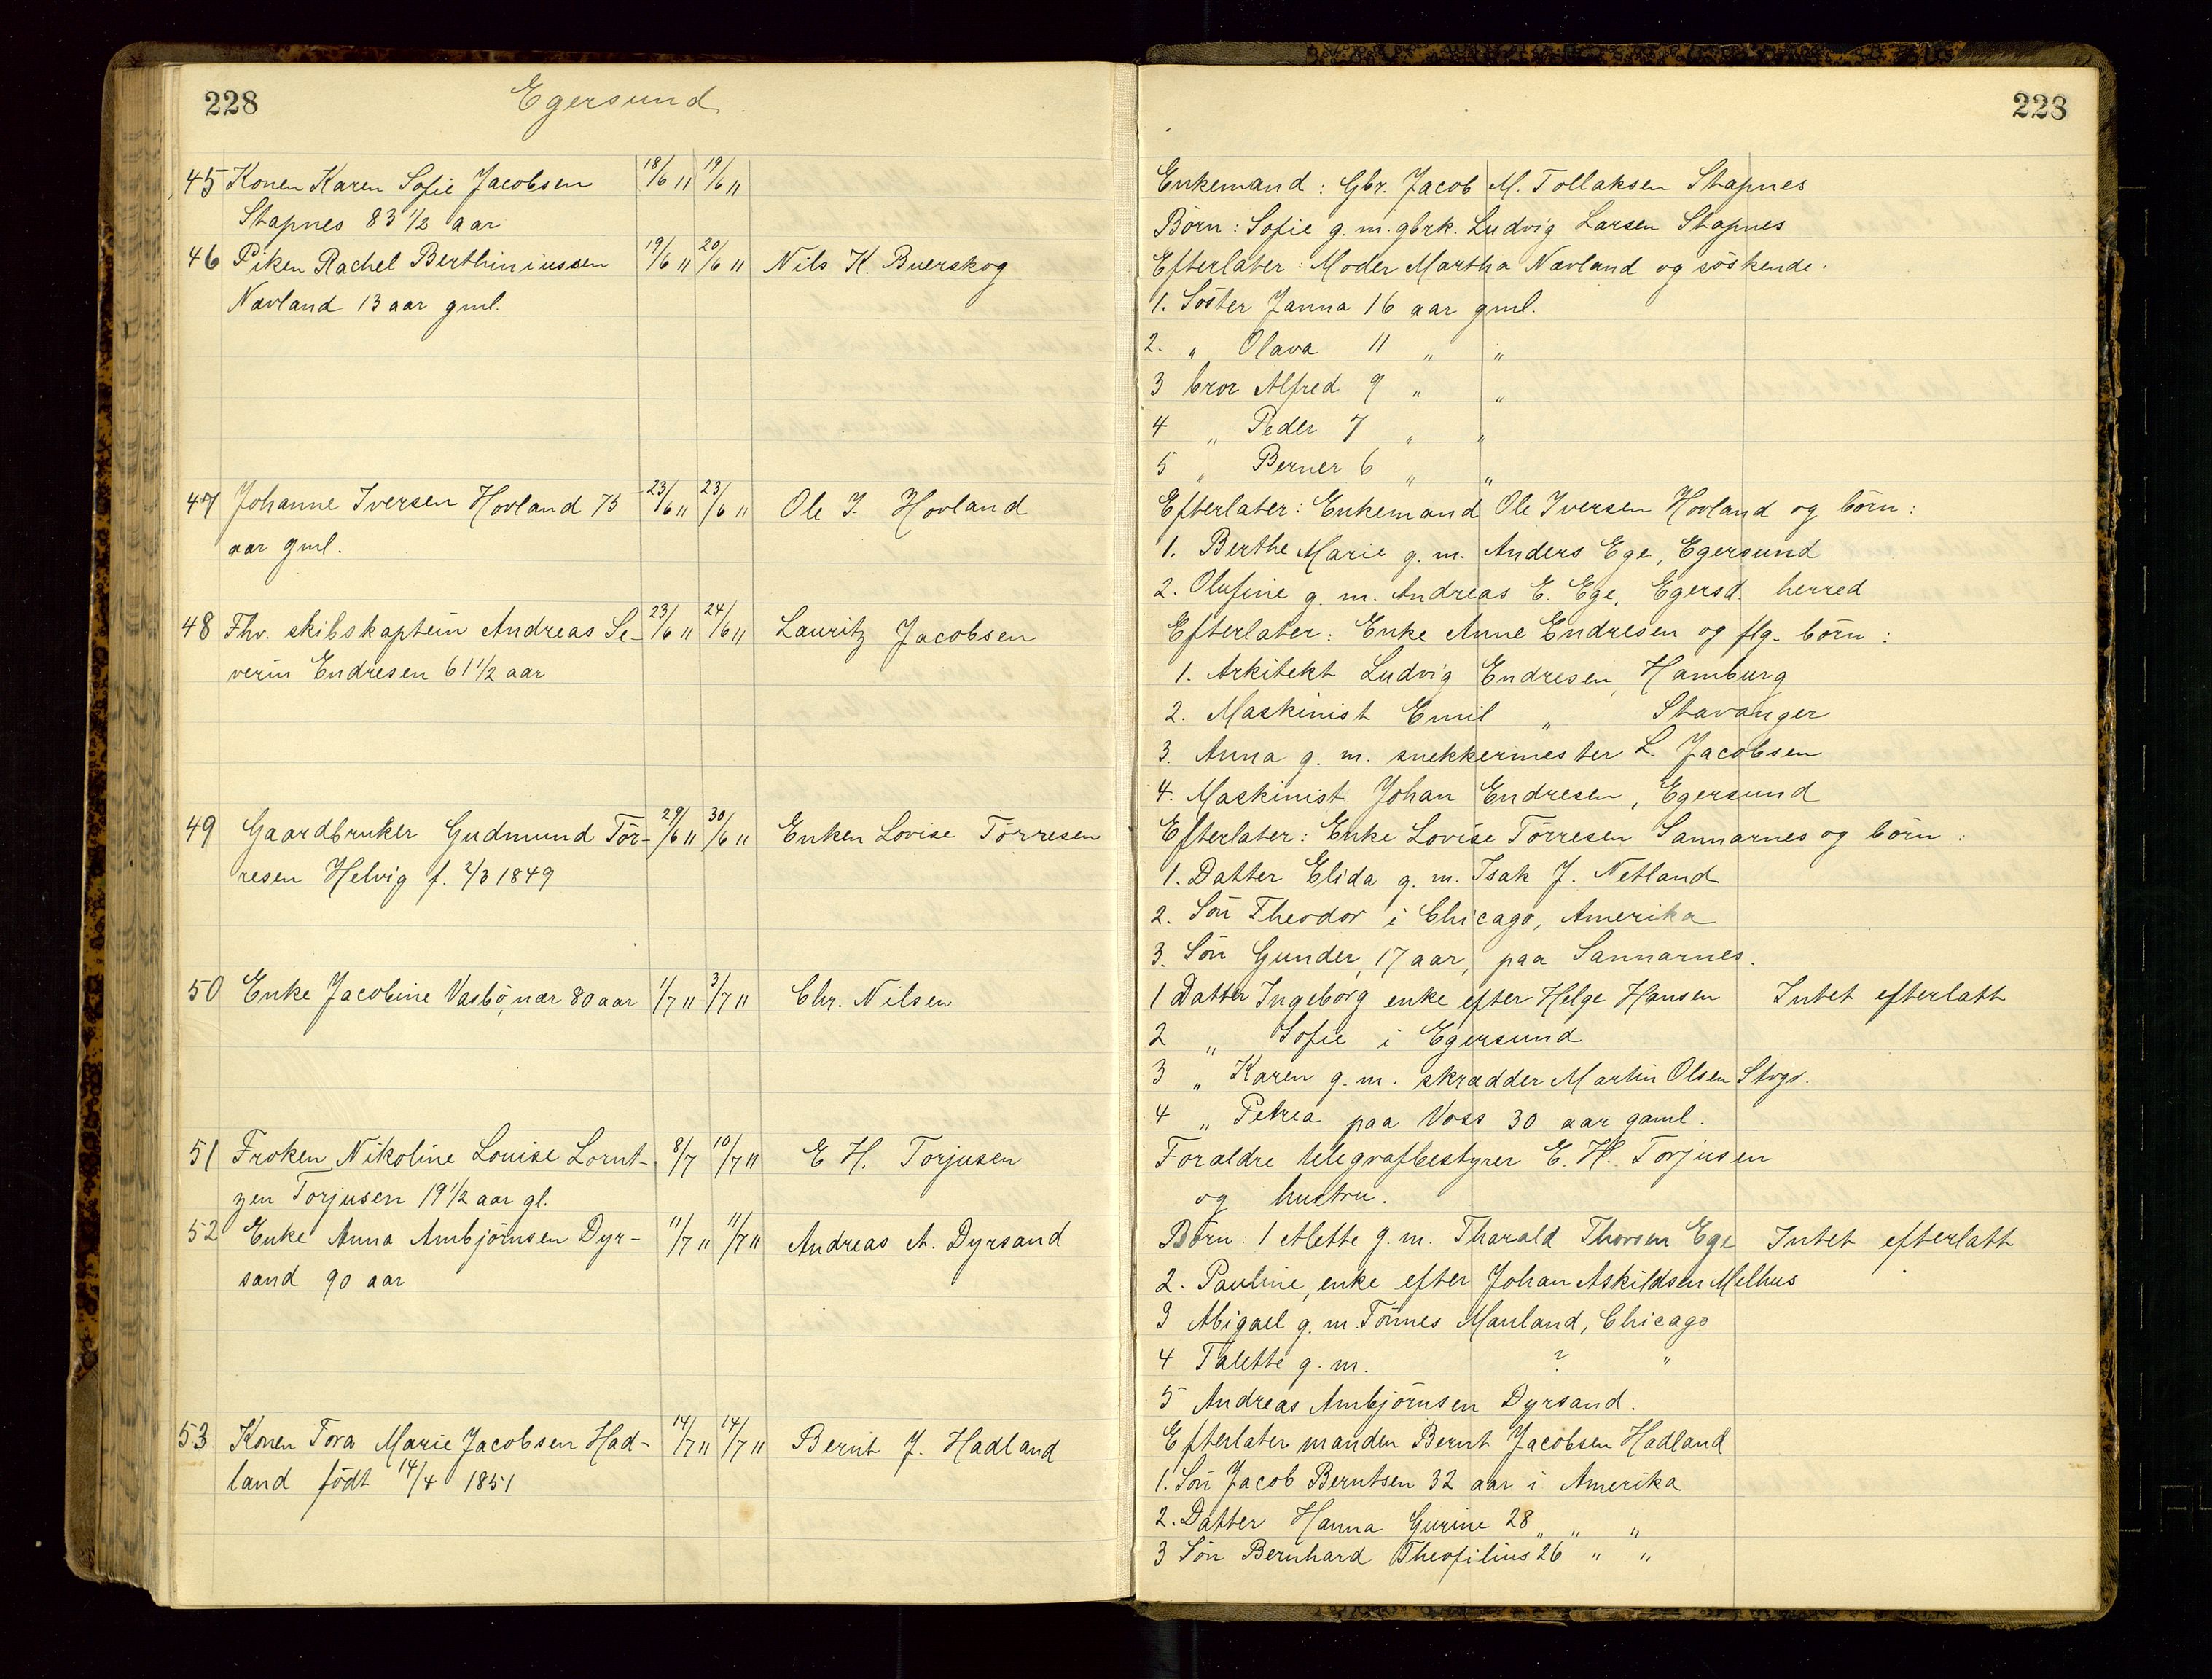 228
Egersund
45 Konen Karen Sofie Jacobsen 18/6 11 19/6 11
Stapnes 83 1/2 aar
46 Piken Rachel Berthiniussen 19/6 11 20/6 11 Nils K. Buerskog
Nævland 13 aar gml.
47 Johanne Iversen Hovland 75 23/6 11 23/6 11 Ole I. Hovland
aar gml.
48 Fhv. skibskaptein Andreas Se- 23/6 11 24/6 11 Lauritz Jacobsen
verin Endresen 61 1/2 aar
49 Gaardbruker Gudmund Tör- 29/6 11 30/6 11 Enken Lovise Törresen
resen Helvig f. 2/3 1849
50 Enke Jacobine Vasbö, nær 80 aar 1/7 11 3/7 11 Chr. Nilsen
51 Froken Nikoline Louise Lornt- 8/7 10/7 11 E H. Torjusen
zen Torjusen 19 1/2 aar gl.
52 Enke Anna Ambjörnsen Dyr- 11/7 11 11/7 11 Andreas A. Dyrsand
sand 90 aar
53 Konen Tora Marie Jacobsen Had- 14/7 11 14/7 11 Bernt J. Hadland
land födt 14/4 1851
228
Enkemand: Gbr. Jacob M. Tollaksen Stapnes
Börn: Sofie g. m. gbrk. Ludvig Larsen Stapnes
Efterlater: Moder Martha Nævland og söskende.
1. Söster Janna 16 aar gml.
2. " Olava 11 " "
3 bror Alfred 9 " "
4 " Peder 7 " "
5 " Berner 6 " "
Efterlater: Enkemand Ole Iversen Hovland og börn:
1. Berthe Marie g. m. Anders Ege, Egersund
2. Olufine g. m. Andreas E. Ege, Egersd. herred
Efterlater: Enke Anne Endresen og flg. börn:
1. Arkitekt Ludvig Endresen, Hamburg
2. Maskinist Emil " Stavanger
3. Anna g. m. snekkermester L. Jacobsen
4. Maskinist Johan Endresen, Egersund
Efterlater: Enke Lovise Törresen Sannarnes og börn:
1. Datter Elida g. m. Isak J. Netland
2. Sön Theodor i Chicago, Amerika
3. Sön Gunder, 17 aar, paa Sannarnes.
1 Datter Ingeborg enke efter Helge Hansen Intet efterlatt
2 " Sofie i Egersund
3 " Karen g. m. skrædder Martin Olsen Stvgr.
4 " Petrea paa Voss 30 aar gaml.
Forældre telegrafbestyrer E. H. Torjusen
og hustru.
Börn: 1 Alette g. m. Tharald Thorsen Ege Intet efterlatt
2. Pauline, enke efter Johan Askildsen Melhus
3 Abigael g. m. Tönnes Mauland, Chicago
4 Talette g. m. ? "
5 Andreas Ambjörnsen Dyrsand.
Efterlater manden Bernt Jacobsen Hadland
1. Sön Jacob Berntsen 32 aar i Amerika
2. Datter Hanna Gurine 28 " " "
3 Sön Bernhard Theofilius 26 " "